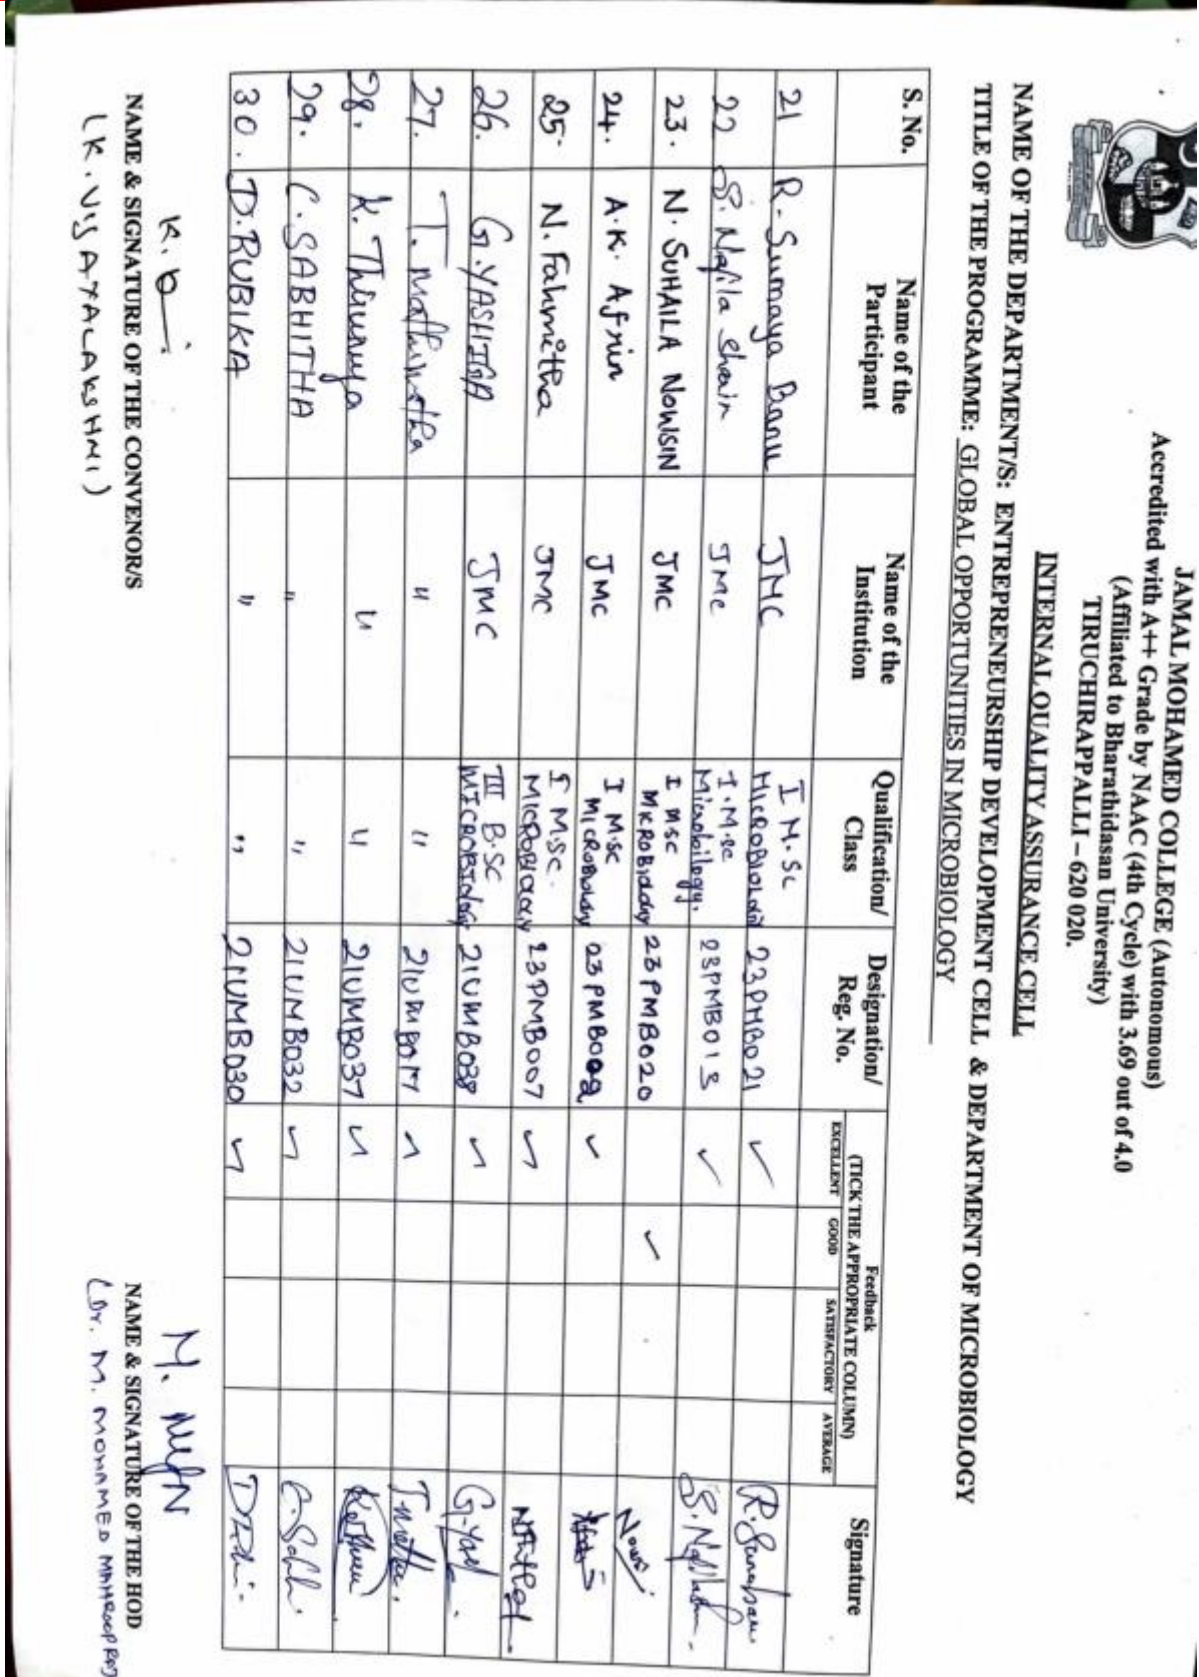 JAMAL MOHAMED COLLEGE (Autonomous)
Accredited with A++ Grade by NAAC (4th Cycle) with 3.69 out of 4.0
(Affiliated to Bharathidasan University)
TIRUCHIRAPPALLI – 620 020.
INTERNAL QUALITY ASSURANCE CELL
NAME OF THE DEPARTMENT/S: ENTREPRENEURSHIP DEVELOPMENT CELL & DEPARTMENT OF MICROBIOLOGY
TITLE OF THE PROGRAMME: GLOBAL OPPORTUNITIES IN MICROBIOLOGY
S. No. Name of the Participant Name of the Institution Qualification/ Class Designation/ Reg. No. Feedback (TICK THE APPROPRIATE COLUMN) EXCELLENT GOOD SATISFACTORY AVERAGE Signature
21 R. Sumaya Banu JMC I M.Sc MICROBIOLOGY 23PMB021 ✓
22 S. Nafila JMC I.M.sc Microbiology. 23PMB013 ✓
23. N. SUHAILA NOWSIN JMC I MSC MICROBIOLOGY 23PMB020 ✓
24. A.K. Afrin JMC I M.SC MICROBIOLOGY 23PMB002 ✓
25. N. Fahmitha JMC I M.SC. MICROBIOLOGY 23PMB007 ✓
26. G. YASHIGA JMC III B.SC MICROBIOLOGY 21UMB038 ✓
27. T. " " 21UMB017 ✓
28. K. " " 21UMB037 ✓
29. C. SABHITHA " " 21UMB032 ✓
30. D. RUBIKA " " 21UMB030 ✓
NAME & SIGNATURE OF THE CONVENOR/S
(K. VIJAYALAKSHMI)
NAME & SIGNATURE OF THE HOD
(Dr. M. MOHAMED